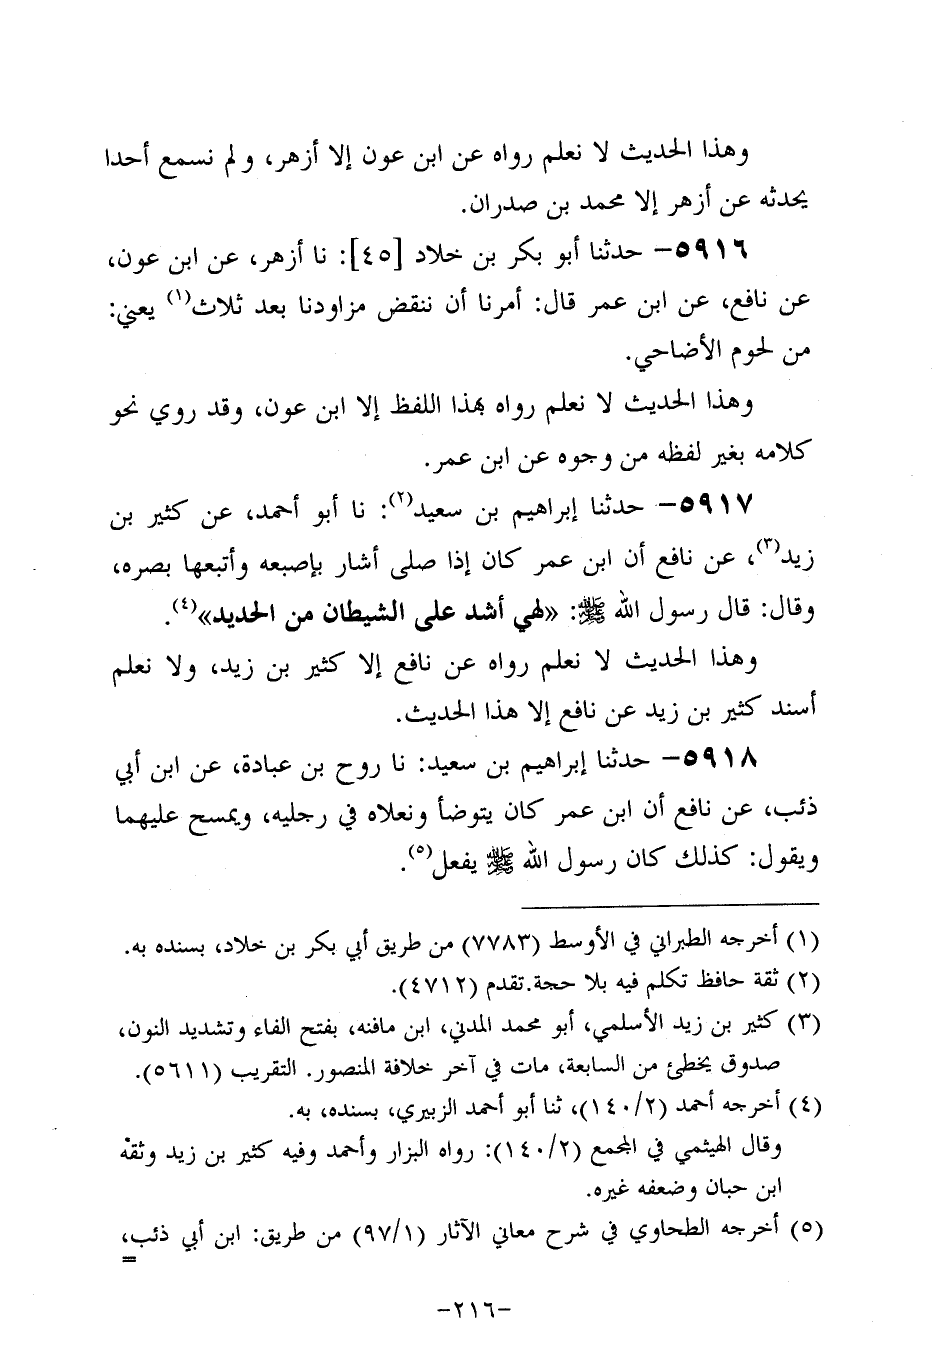 وهذا الحديث لا نعلم رواه عن ابن عون إلا أزهر، ولم نسمع أحدا
يحدثه عن أزهر إلا محمد بن صدران.
٥٩١٦– حدثنا أبو بكر بن خلاد [٤٥]: نا أزهر، عن ابن عون،
عن نافع، عن ابن عمر قال: أمرنا أن ننقض مزاودنا بعد ثلاث(١) يعني:
من لحوم الأضاحي.
وهذا الحديث لا نعلم رواه بهذا اللفظ إلا ابن عون، وقد روي نحو
كلامه بغير لفظه من وجوه عن ابن عمر.
٥٩١٧– حدثنا إبراهيم بن سعيد(٢): نا أبو أحمد، عن كثير بن
زيد(٣)، عن نافع أن ابن عمر كان إذا صلى أشار بإصبعه وأتبعها بصره،
وقال: قال رسول الله ﷺ: «لهي أشد على الشيطان من الحديد»(٤).
وهذا الحديث لا نعلم رواه عن نافع إلا كثير بن زيد، ولا نعلم
أسند كثير بن زيد عن نافع إلا هذا الحديث.
٥٩١٨– حدثنا إبراهيم بن سعيد: نا روح بن عبادة، عن ابن أبي
ذئب، عن نافع أن ابن عمر كان يتوضأ ونعلاه في رجليه، ويمسح عليهما
ويقول: كذلك كان رسول الله ﷺ يفعل(٥).
(١) أخرجه الطبراني في الأوسط (٧٧٨٣) من طريق أبي بكر بن خلاد، بسنده به.
(٢) ثقة حافظ تكلم فيه بلا حجة.تقدم (٤٧١٢).
(٣) كثير بن زيد الأسلمي، أبو محمد المدني، ابن مافنه، بفتح الفاء وتشديد النون،
صدوق يخطئ من السابعة، مات في آخر خلافة المنصور. التقريب (٥٦١١).
(٤) أخرجه أحمد (١٤٠/٢)، ثنا أبو أحمد الزبيري، بسنده، به.
وقال الهيثمي في المجمع (١٤٠/٢): رواه البزار وأحمد وفيه كثير بن زيد وثقه
ابن حبان وضعفه غيره.
(٥) أخرجه الطحاوي في شرح معاني الآثار (٩٧/١) من طريق: ابن أبي ذئب، =
–٢١٦–